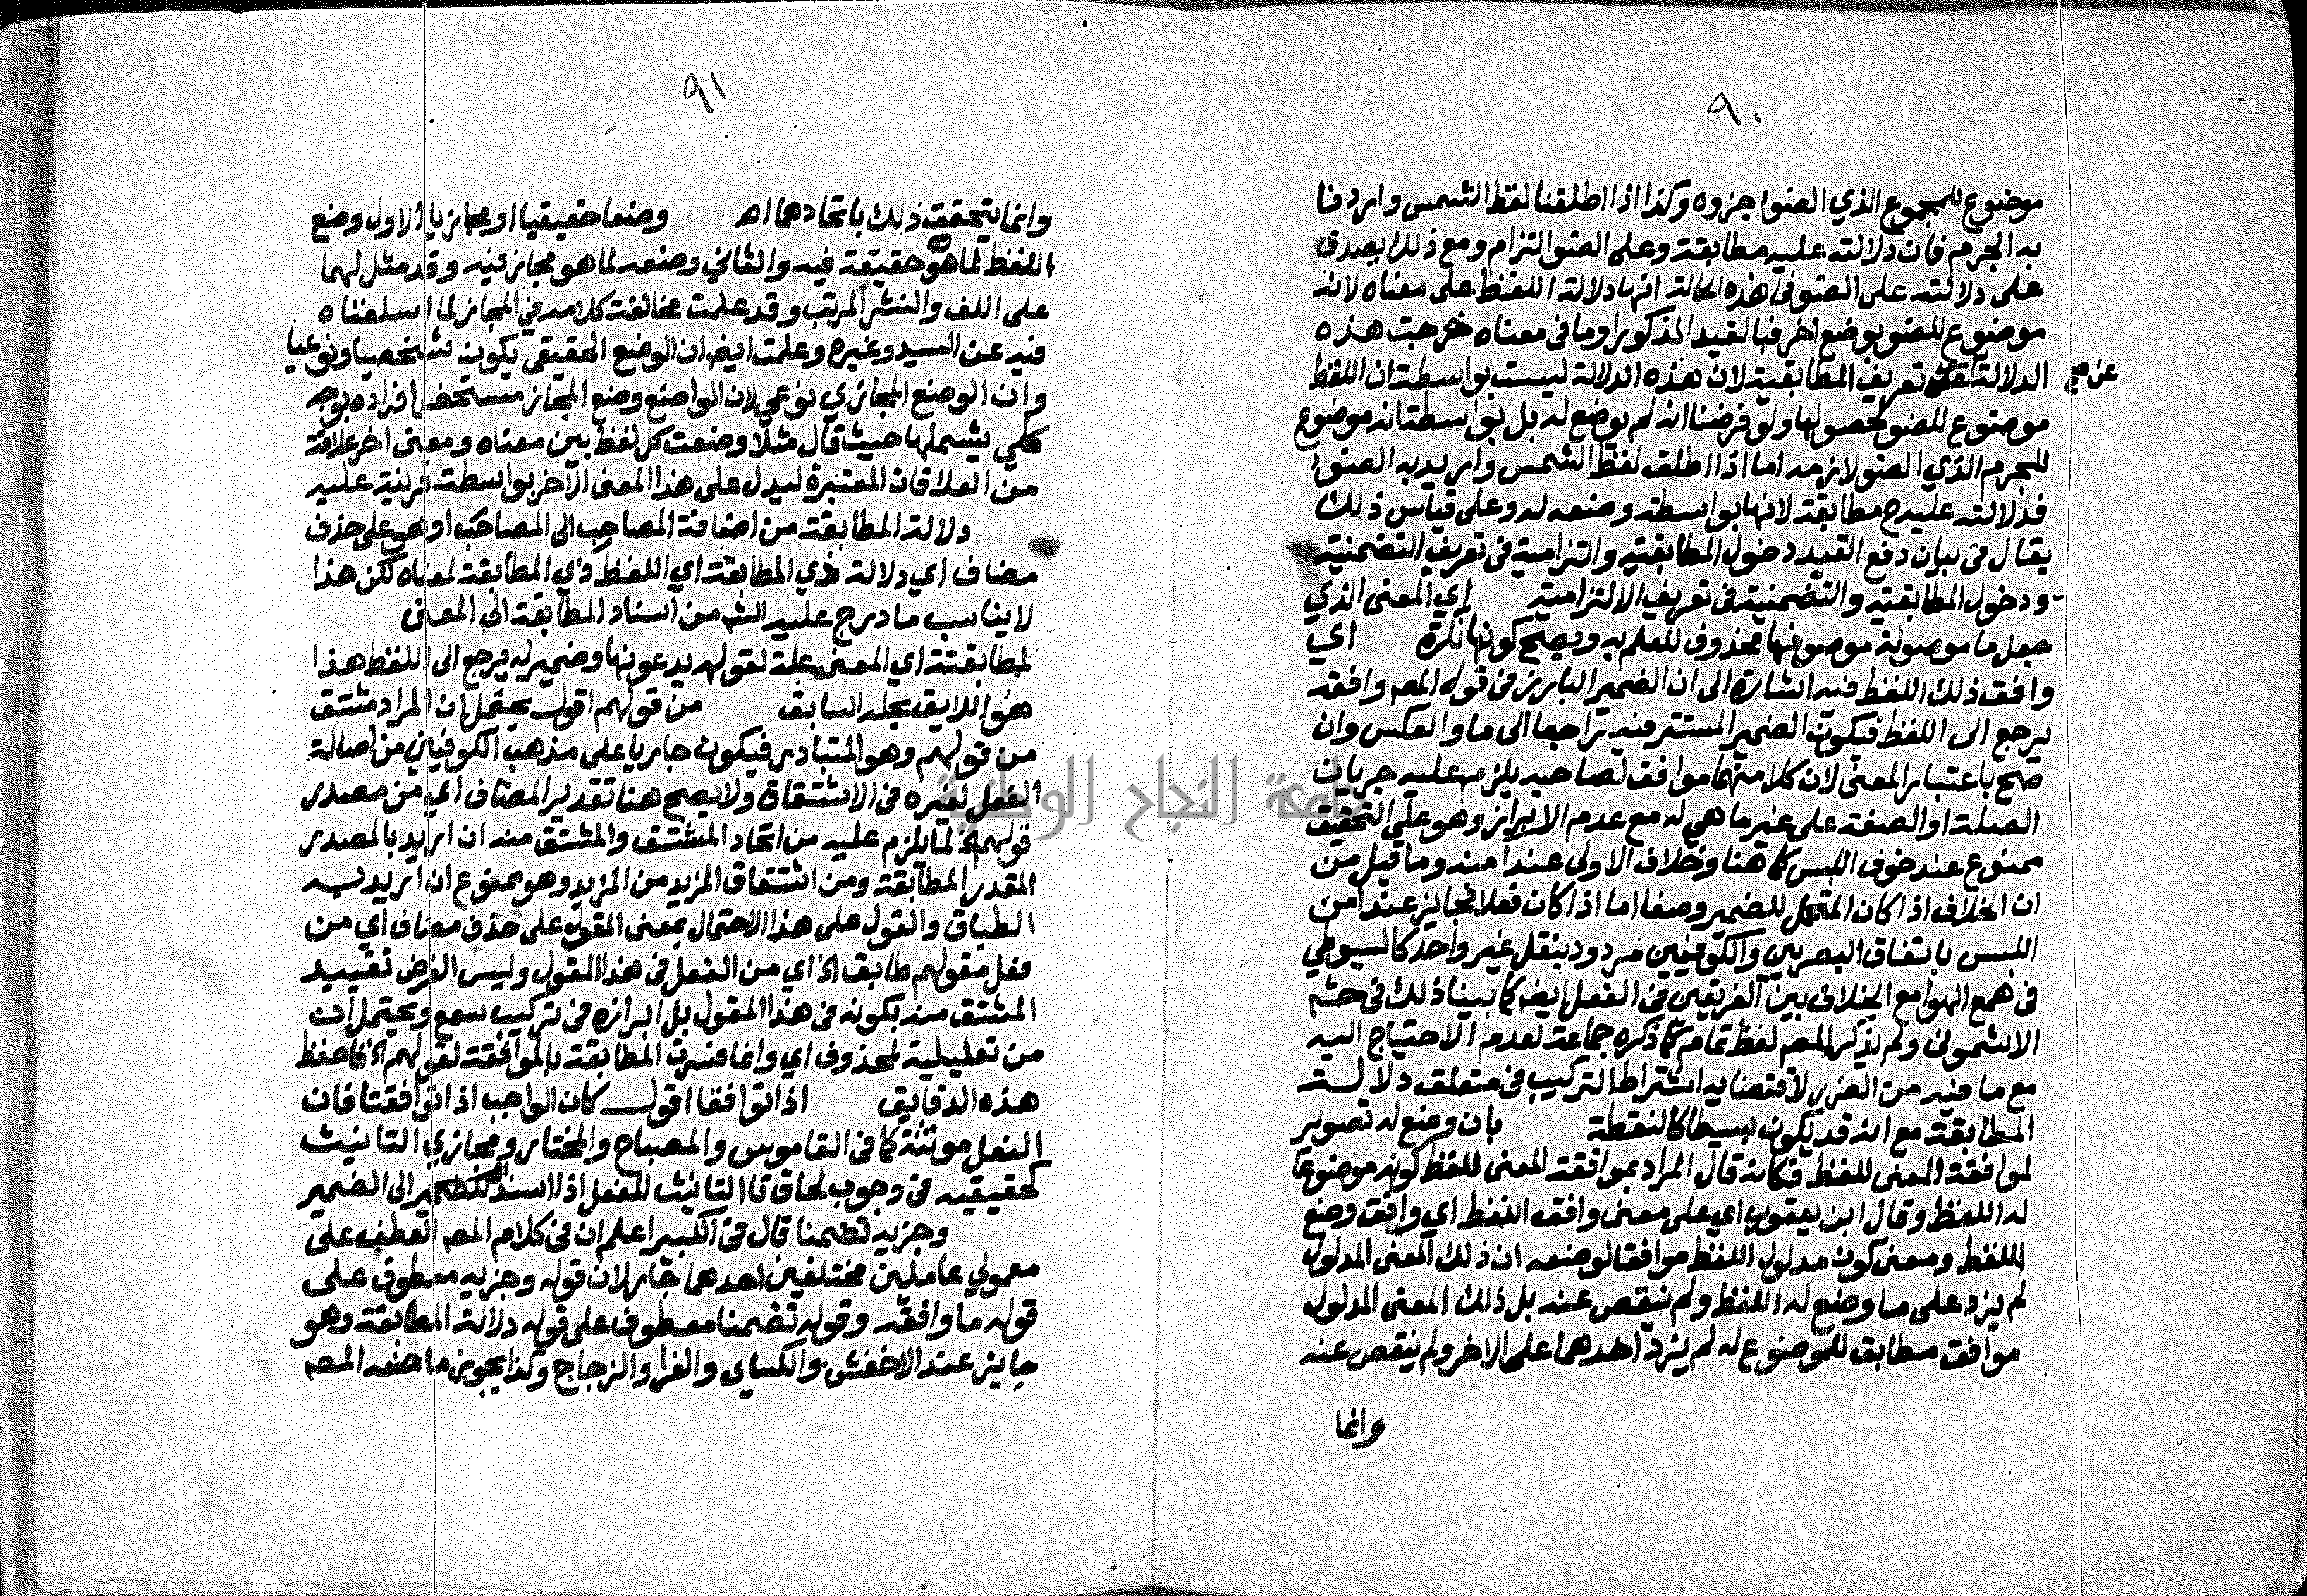 ٩٠
موضوع للمجموع الذي الضوء جزوه وكذا اذا اطلقنا لفظ الشمس واردنا
به الجرم فان دلالته عليه مطابقة وعلى الضو التزام ومع ذلك يصدق
على دلالته على الضو في هذه الحالة انها دلالة اللفظ على معناه لانه
موضوع للضو بوضع اخر فبالقيد المذكور او ما في معناه خرجت هذه
الدلالة عن تعريف المطابقية لان هذه الدلالة ليست بواسطة ان اللفظ
عن صح
موضوع للضو لحصولها ولو فرضنا انه لم يوضع له بل بواسطة انه موضوع
للجرم الذي الضو لازمه اما اذا اطلق لفظ الشمس واريد به الضوء
فدلالته عليه ح مطابقة لانها بواسطة وضعه له وعلى قياس ذلك
يقال في بيان دفع القيد دخول المطابقية والتزامية في تعريف التضمنية
ودخول المطابقية والتضمنية في تعريف الالتزامية اي المعنى الذي
جعل ما موصولة موصوفها محذوف للعلم به ويصح كونها نكرة اي
وافق ذلك اللفظ فيه اشارة الى ان الضمير البارز في قوله المصـ وافقه
يرجع الى اللفظ فيكون الضمير المستتر فيه راجعا الى ما والعكس وان
صح باعتبار المعنى لان كلا منهما موافق لصاحبه يلزم عليه جريان
الصلة او الصفة على غير ما هي له مع عدم الابراز وهو على التحقيق
ممنوع عند خوف اللبس كما هنا وخلاف الاولى عند امنه وما قيل من
ان الخلاف اذا كان المتحمل للضمير وصفا اما اذا كان فعلا فجايز عند امن
اللبس باتفاق البصريين والكوفيين مردود بنقل غير واحد كالسيوطي
في همع الهوامع الخلاف بين الفريقين في الفعل ايضا كما بينا ذلك في حشـ
الاشموني ولم يذكر المصـ لفظ تمام كما ذكره جماعة لعدم الاحتياج اليه
مع ما فيه من الضرر لاقتضايه اشتراط التركيب في متعلق دلالة
المطابقة مع انه قد يكون بسيطا كالنقطة بان وضع له تصوير
لموافقة المعنى للفظ فكانه قال المراد بموافقة المعنى للفظ كونه موضوعا
له اللفظ وقال ابن يعقوب اي على معنى وافق اللفظ اي وافق وضع
اللفظ ومعنى كون مدلول اللفظ موافقا لوضعه ان ذلك المعنى المدلول
لم يزد على ما وضع له اللفظ ولم ينقص عنه بل ذلك المعنى المدلول
موافق مطابق للموضوع له لم يزد احدهما على الاخر ولم ينقص عنه
وانما
٩١
وانما يتحقق ذلك باتحادهما اهـ وضعا حقيقيا او مجازيا الاول وضع
اللفظ لما هو حقيقة فيه والثاني وضعه لما هو مجاز فيه وقد مثل لهما
على اللف والنشر المرتب وقد علمت مخالفة كلامه في المجاز لما اسلفناه
فيه عن السيد وغيره وعلمت ايضا ان الوضع الحقيقي يكون شخصيا ونوعيا
وان الوضع المجازي نوعي لان الواضع وضع المجاز مستحضرا افراده بوجه
كلي يشملها حيث قال مثلا وضعت كل لفظ بين معناه ومعنى اخر علاقة
من العلاقات المعتبرة ليدل على هذا المعنى الاخر بواسطة قرينة عليه
دلالة المطابقة من اضافة المصاحِب الى المصاحَب او هو على حذف
مضاف اي دلالة ذي المطابقة اي اللفظ ذي المطابقة لمعناه لكن هذا
لا يناسب ما درج عليه الشـ من اسناد المطابقة الى المعنى
لمطابقته اي المعنى علة لقوله يدعونها وضمير له يرجع الى اللفظ هذا
هو اللايق بحله السابق من قولهم اقول يحتمل ان المراد مشتق
من قولهم وهو المتبادر فيكون جاريا على مذهب الكوفيين من اصالة
الفعل لغيره في الاشتقاق ولا يصح هنا تقدير المضاف اي من مصدر
قولهم الخ لما يلزم عليه من اتحاد المشتق والمشتق منه ان اريد بالمصدر
المقدر المطابقة ومن اشتقاق المزيد من المزيد وهو ممنوع ان اريد به
الطباق والقول على هذا الاحتمال بمعنى المقول على حذف مضاف اي من
فعل مقولهم طابق الخ اي من الفعل في هذا المقول وليس الغرض تقييد
المشتق منه بكونه في هذا المقول بل ابرازه في تركيب سمع ويحتمل ان
من تعليلية لمحذوف اي وانما فسرت المطابقة بالموافقة لقولهم الخ فاحفظ
هذه الدقايق اذا توافقا اقول كان الواجب اذا توافقتا فان
النعل مونثة كما في القاموس والمصباح والمختار ومجازي التانيث
كحقيقيه في وجوب لحاق تا التانيث للفعل اذا اسند الى الضمير
وجزيه تضمنا قال في الكبير اعلم ان في كلام المصـ العطف على
معمولي عاملين مختلفين احدهما جار لان قوله وجزيه معطوف على
قوله ما وافقه وقوله تضمنا معطوف على قوله دلالة المطابقة وهو
جايز عند الاخفش والكساي والفرا والزجاج وكذا يجوز ما صنعه المصـ
جامعة النجاح الوطنية